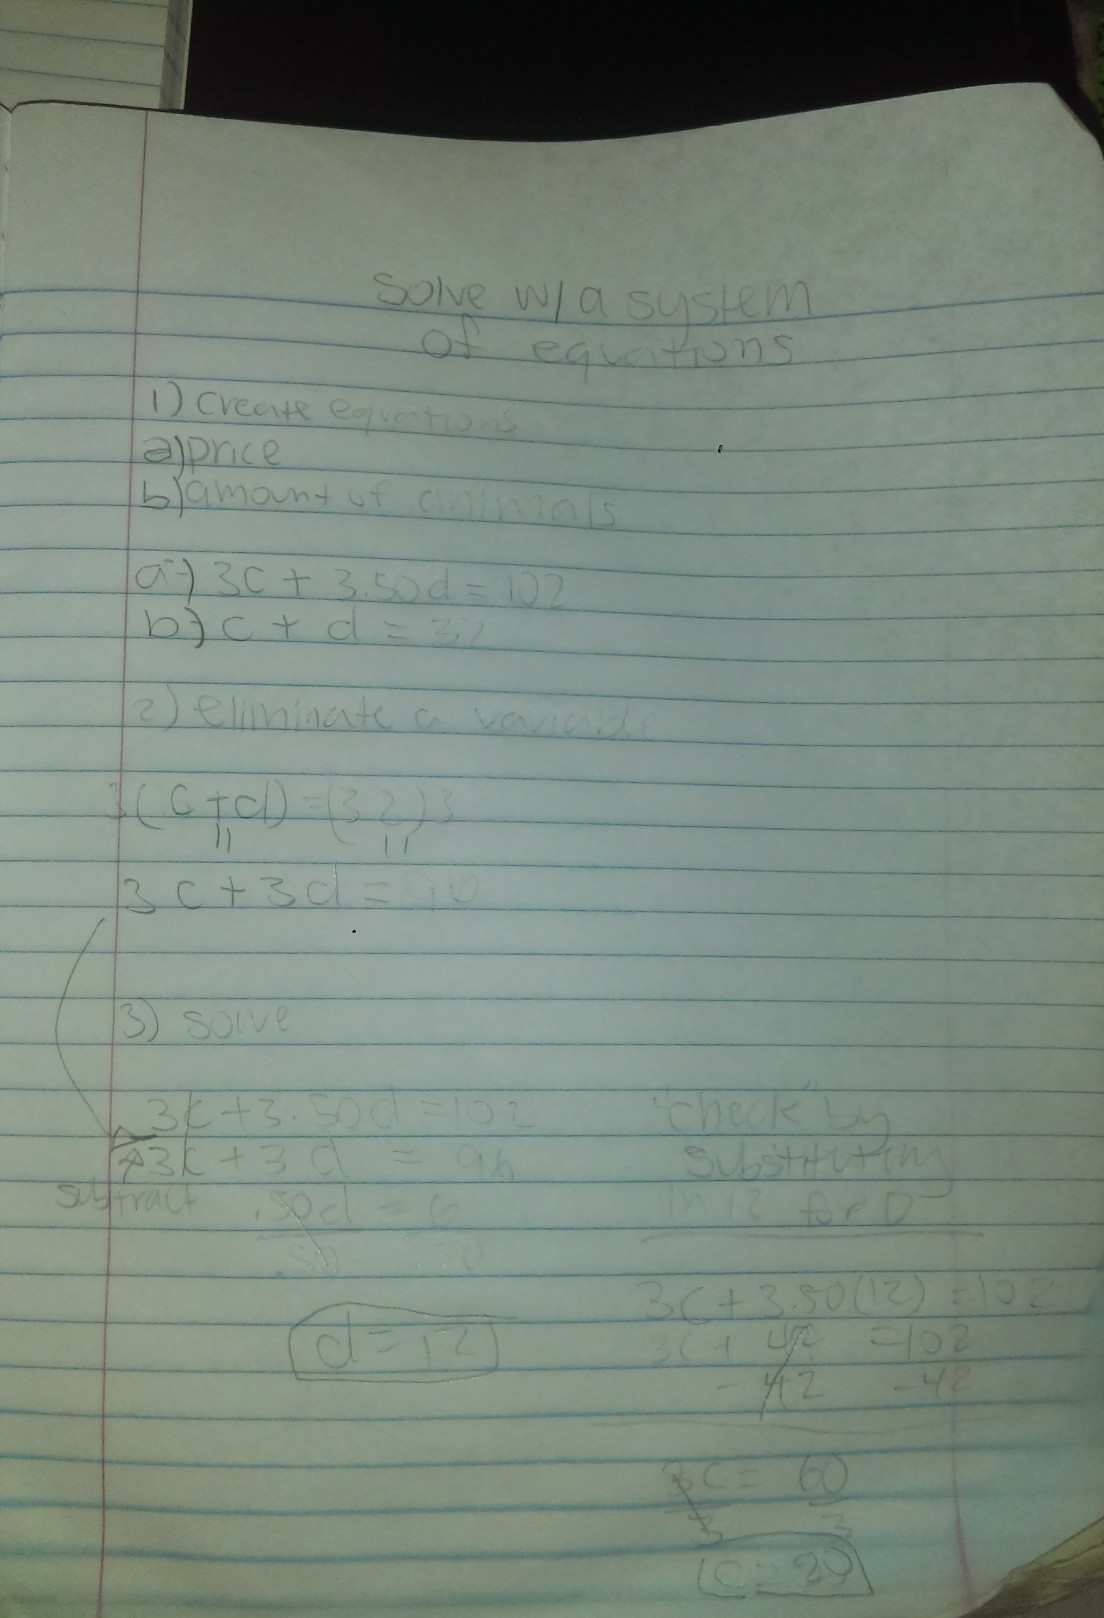 Solve w/ a system
of equations
1) Create equations
a) price
b) amount of animals
a) 3c + 3.50d = 102
b) c + d = 32
2) eliminate a variable
3(c+d) = (32)3
3c + 3d =
3) solve
3c + 3.50d = 102
3c + 3d = 96
subtract .50d = 6
.50 .50
d = 12
"check" by
substituting
in 12 for D
3c + 3.50(12) = 102
3c + 42 = 102
- 42 - 42
3c = 60
3 3
c = 20